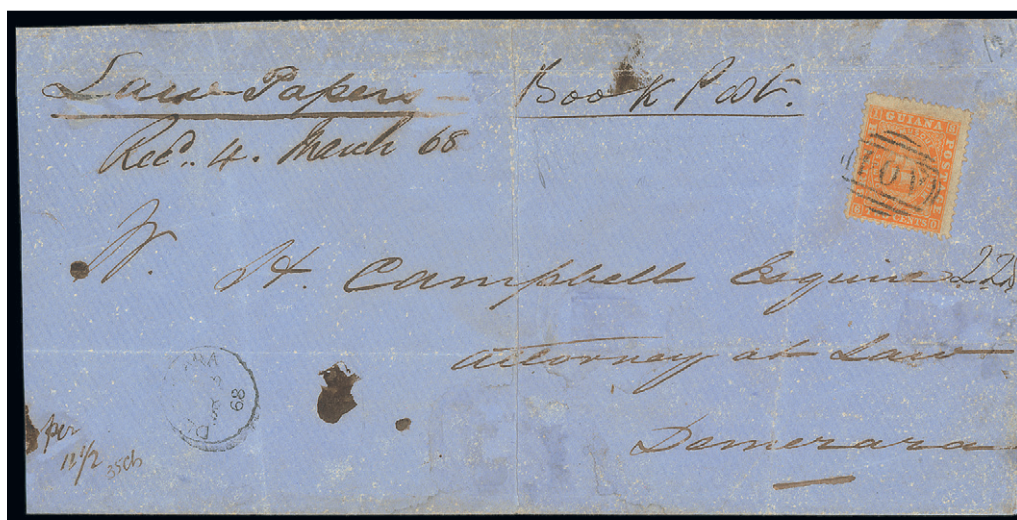 Law Papers - Book Post.
Recd. 4. March 68
GUIANA
POSTAGE
CENTS
A01
W. H. Campbell Esquire
Attorney at Law
Demerara
68
per
11 1/2